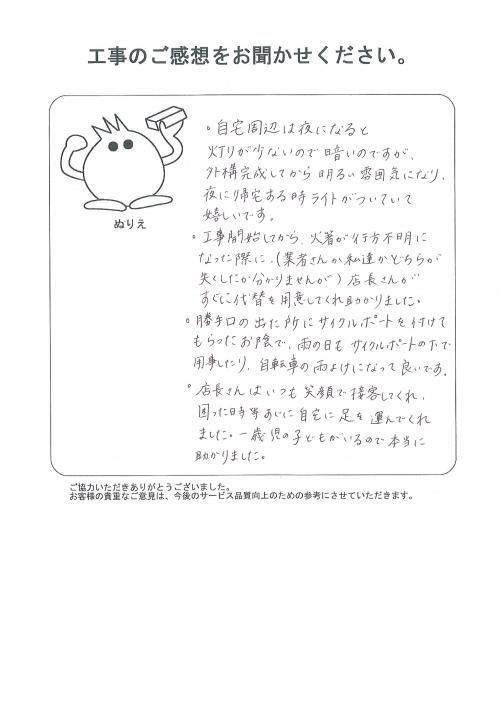 工事のご感想をお聞かせください。
ぬりえ
。自宅周辺は夜になると
灯りが少ないので暗いのですが、
外構完成してから明るい雰囲気になり、
夜に帰宅する時ライトがついていて
嬉しいです。
。工事開始してから、火著が行方不明に
なった際に、(業者さんか私達かどちらが
失くしたか分かりませんが)店長さんが
すぐに代替を用意してくれ助かりました。
。勝手口の出た所にサイクルポートを付けて
もらったお陰で、雨の日もサイクルポートの下で
用事したり、自転車の雨よけになって良いです。
。店長さんはいつも笑顔で接客してくれ、
困った時等すぐに自宅に足を運んでくれ
ました。一歳児の子どもがいるので本当に
助かりました。
ご協力いただきありがとうございました。
お客様の貴重なご意見は、今後のサービス品質向上のための参考にさせていただきます。